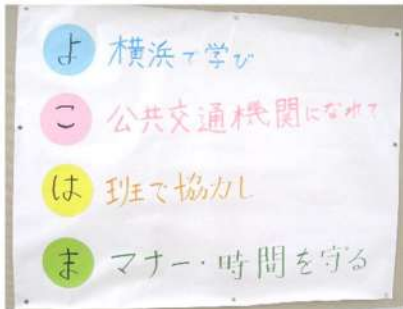 よ 横浜で学び
こ 公共交通機関になれて
は 班で協力し
ま マナー・時間を守る